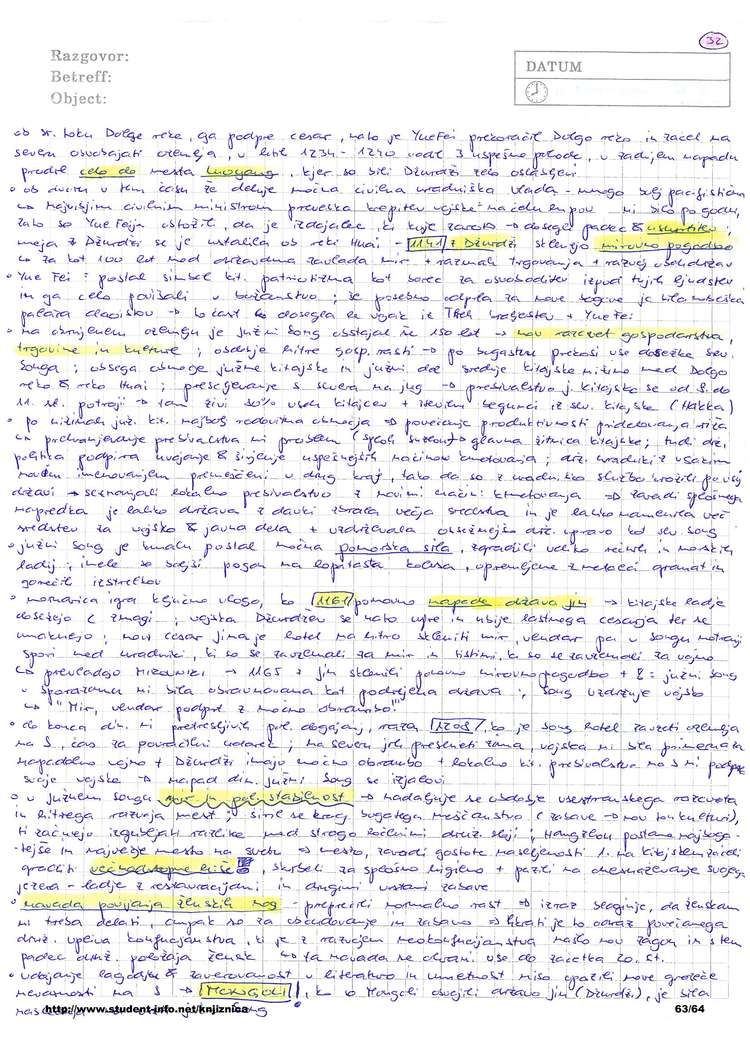 32
Razgovor:
Betreff:
Object:
DATUM
ob sr. toku Dolge reke, ga podpre cesar, nato je Yue Fei prekoračil Dolgo reko in začel na
severu osvobajati ozemlja, v letih 1234 - 1240 vodi 3 uspešne pohode, v zadnjem napadu
prodre celo do mesta Luoyang, kjer so bili Džurdži zelo oslabljeni
• ob dvoru v tem času že deluje močna civilna uradniška vlada - mnogo bolj pacifistična
↳ najvišjim civilnim ministrom prevelika krepitev vojske na čelu ni bilo po godu,
zato so Yue Feija obtožili, da je izdajalec, ki kuje zaroto → dosegli padec & usmrtitev;
meja z Džurdži se je ustalila ob reki Huai - 1141 z Džurdži sklenejo mirovno pogodbo
↳ za kot 100 let med državama zavlada mir + razmah trgovanja + razvoj obeh držav
• Yue Fei: postal simbol kit. patriotizma kot borec za osvoboditev izpod tujih ljudstev
in ga celo povišali v božanstvo; še posebno odprta za nove bogove je bila nebeška
palača daoistov → to čast je dosegel vojak iz Treh kraljestev + Yue Fei
• na okrnjenem ozemlju je Južni Song obstajal še 150 let → nov razcvet gospodarstva,
trgovine in kulture; obdobje hitre gosp. rasti → po bogastvu prekosi vse dosežke sev.
Songa; obsega območje južne Kitajske in južni del srednje Kitajske nižine med Dolgo
reko & reko Huai; preseljevanje s severa na jug → prebivalstvo j. Kitajske se od 8. do
11. st. potroji → tam živi 50% vseh Kitajcev + številni begunci iz sev. Kitajske (Hakka)
• po nižinah juž. kit. najbolj rodovitna območja → povečanje produktivnosti pridelovanja riža
↳ prehranjevanje prebivalstva ni problem glavna žitnica Kitajske; tudi drž.
politika podpira uvajanje & širjenje uspešnejših načinov kmetovanja; drž. uradniki z vsakim
novim imenovanjem premeščeni v drug kraj, tako da so z uradniško službo krožili po vsej
državi → seznanjali lokalno prebivalstvo z novimi načini kmetovanja → zaradi splošnega
napredka je lahko država z davki zbrala večja sredstva in je lahko namenila več
sredstev za vojsko & javna dela + vzdrževala obsežnejšo drž. upravo kot sev. Song
• južni Song je kmalu postal močna pomorska sila, zgradili veliko rečnih in morskih
ladij; imele so boljši pogon na lopatasta kolesa, opremljene z metalci granat in
gorečih izstrelkov
• mornarica igra ključno vlogo, ko 1161 ponovno napade država Jin → kitajske ladje
dosežejo 2 zmagi; vojska Džurdžev se nato upre in ubije lastnega cesarja ter se
umaknejo; novi cesar Jina je hotel na hitro skleniti mir, vendar pa v Songu notranji
spori med uradniki, ki so se zavzemali za mir in tistimi, ki so se zavzemali za vojno
↳ prevladajo MIROVNIKI → 1165 z Jin sklenili ponovno mirovno pogodbo + &: južni Song
v sporazumu ni bila obravnavana kot podrejena država; Song vzdržuje vojsko
↳ "Mir, vendar podprt z močno obrambo!"
• do konca din. ni pretresljivih pol. dogajanj, razen 1205, ko je Song hotel zavzeti ozemlja
na S, čas za povračilni udarec; na severu jih preseneti zima, vojska ni bila primerna za
napadalno vojno + Džurdži imajo močno obrambo + lokalno kit. prebivalstvo na S ni podprlo
svoje vojske → napad din. južni Song se izjalovi
• v južnem Songu mir in pol. stabilnost → nadaljuje se obdobje vsestranskega razcveta
in hitrega razvoja mest; širil se krog bogatega meščanstva (zabave → nov ton kulturi),
ti začnejo izgubljati razlike med strogo ločenimi druž. sloji; Hangzhou postane najboga-
tejše in največje mesto na svetu → mesto, zaradi gostote naseljenosti 1. na Kitajskem začeli
graditi večnadstropne hiše, skrbeli za splošno higieno + pazili na onesnaževanje svojega
jezera - ladje z restavracijami in drugimi vrstami zabave
• navada povijanja ženskih nog - preprečili normalno rast → izraz blaginje, da ženskam
ni treba delati, ampak so za občudovanje in zabavo → hkrati je to odraz povečanega
druž. vpliva konfucijanstva, ki je z razvojem neokonfucijanstva našlo nov zagon in s tem
padec druž. položaja žensk ↳ ta navada se ohrani vse do začetka 20. st.
• udobje, lagodje & zaverovanost v literaturo in umetnost niso opazili nove grozeče
nevarnosti na S → MONGOLI!, ko so Mongoli osvojili državo Jin (Džurdži), je bila
http://www.student-info.net/knjiznica
63/64